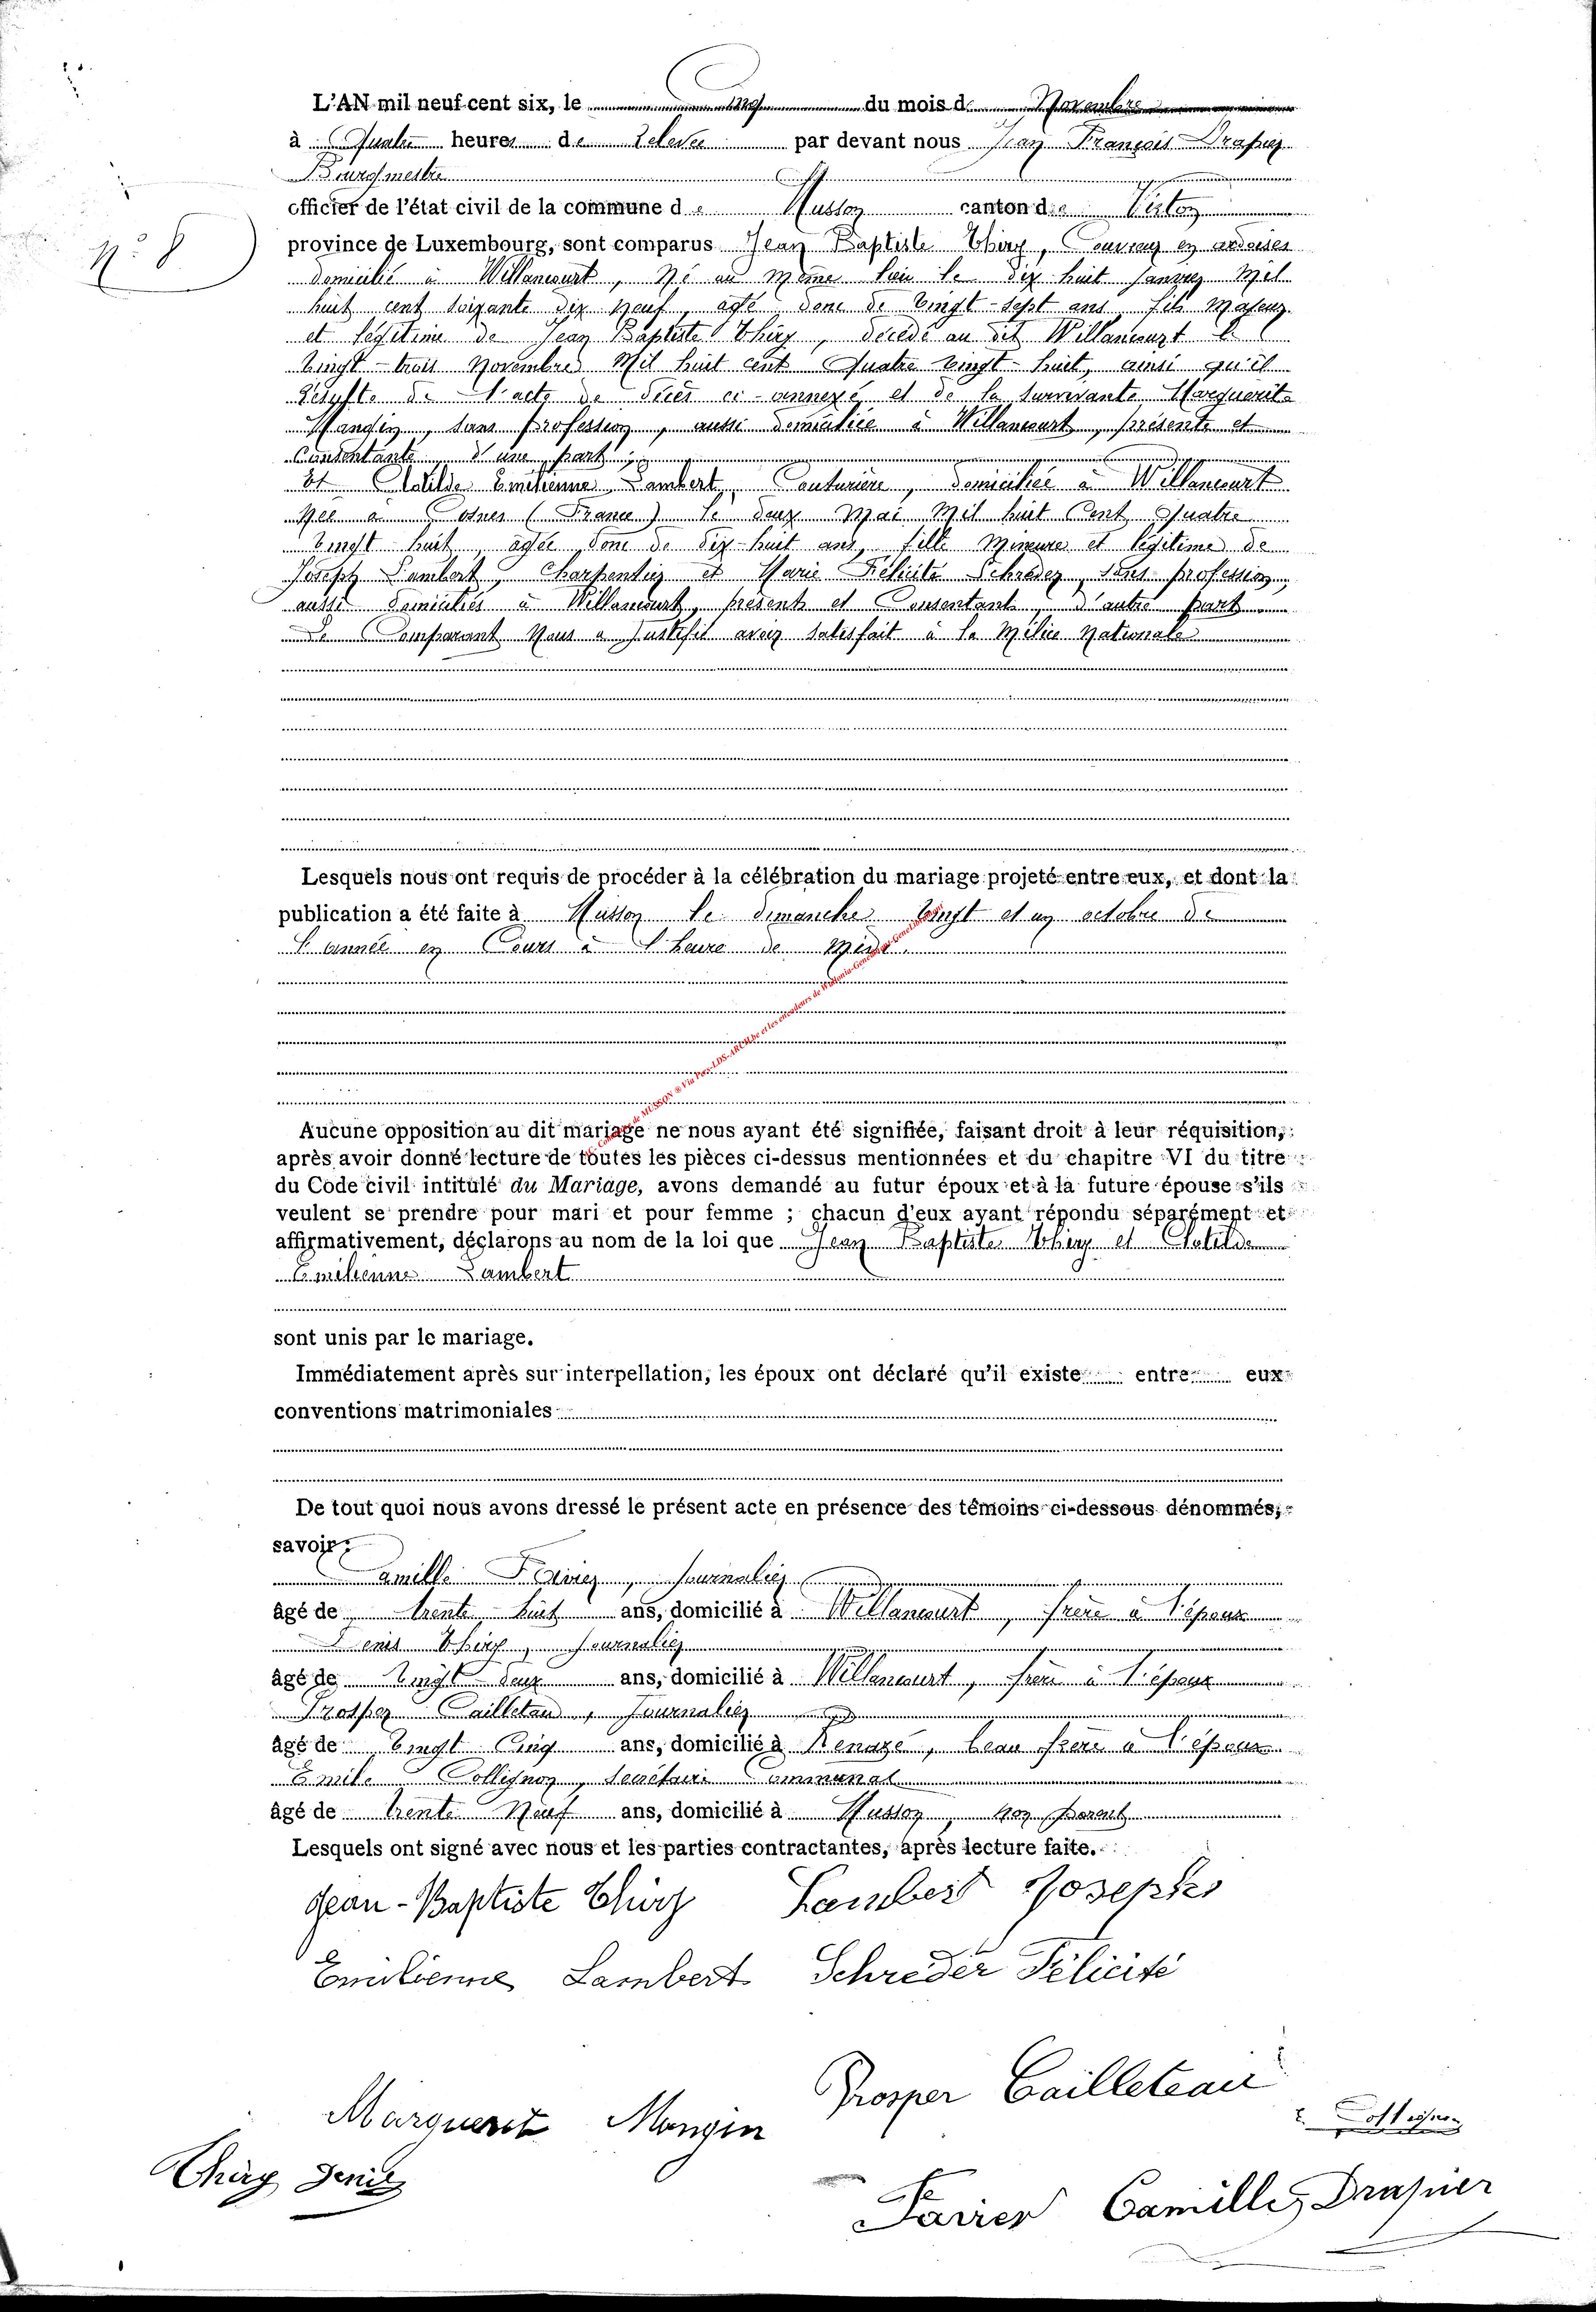 L'AN mil neuf cent six, le cinq du mois de Novembre
à Quatre heures de relevée par devant nous Jean François Drapier
Bourgmestre
officier de l'état civil de la commune de Musson canton de Virton
N° 8
province de Luxembourg, sont comparus Jean Baptiste Thiry, Couvreur en ardoises
domicilié à Willancourt, Né au même lieu le dix huit janvier Mil
huit cent soixante dix neuf, âgé donc de vingt-sept ans, fils Majeur
et légitime de Jean Baptiste Thiry, décédé au dit Willancourt le
vingt-trois Novembre Mil huit cent Quatre vingt-huit, ainsi qu'il
résulte de l'acte de décès ci-annexé et de la survivante Marguerite
Mangin, sans profession, aussi domiciliée à Willancourt, présente et
consentante, d'une part;
Et Clotilde Emilienne Lambert, Couturière, domiciliée à Willancourt
Née à Cosnes (France) le deux Mai Mil huit Cent Quatre
vingt-huit, âgée donc de dix-huit ans, fille Mineure et légitime de
Joseph Lambert, Charpentier et Marie Félicité Schreder, sans profession,
aussi domiciliés à Willancourt, présents et Consentants, d'autre part
Le Comparant Nous a Justifié avoir satisfait à la Milice Nationale
Lesquels nous ont requis de procéder à la célébration du mariage projeté entre eux, et dont la
publication a été faite à Musson le dimanche vingt et un octobre de
l'année en Cours à l'heure de Midi.
Commune de MUSSON ® Via Pers-LDS-ARCH.be et les encodeurs de Wallonia-Genealogy-GeneLibre
Aucune opposition au dit mariage ne nous ayant été signifiée, faisant droit à leur réquisition,
après avoir donné lecture de toutes les pièces ci-dessus mentionnées et du chapitre VI du titre
du Code civil intitulé du Mariage, avons demandé au futur époux et à la future épouse s'ils
veulent se prendre pour mari et pour femme ; chacun d'eux ayant répondu séparément et
affirmativement, déclarons au nom de la loi que Jean Baptiste Thiry et Clotilde
Emilienne Lambert
sont unis par le mariage.
Immédiatement après sur interpellation, les époux ont déclaré qu'il existe entre eux
conventions matrimoniales
De tout quoi nous avons dressé le présent acte en présence des témoins ci-dessous dénommés,
savoir:
Camille Favier, Journalier
âgé de trente huit ans, domicilié à Willancourt, frère à l'époux
Denis Thiry, Journalier
âgé de vingt deux ans, domicilié à Willancourt, frère à l'époux
Prosper Cailleteau, Journalier
âgé de vingt Cinq ans, domicilié à Renazé, beau frère à l'époux
Emile Collignon, Secrétaire Communal
âgé de trente Neuf ans, domicilié à Musson, non parent
Lesquels ont signé avec nous et les parties contractantes, après lecture faite.
Jean-Baptiste Thiry Lambert Josephe
Emilienne Lambert Schreder Félicité
Prosper Cailleteau
Marguerit Mangin
E. Collignon
Thiry Denis
Favier Camille Drapier